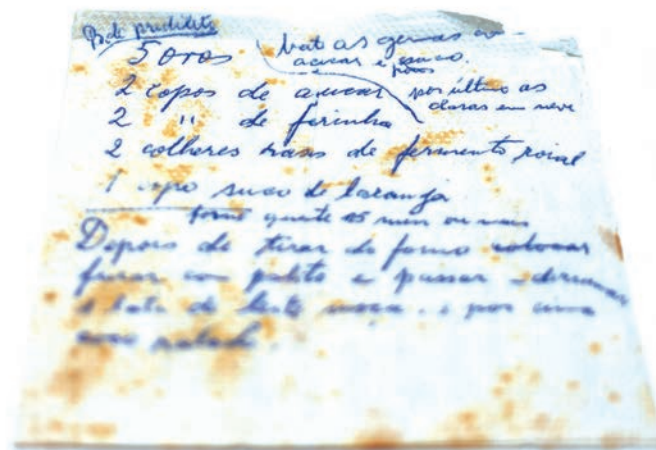 Bolo predileto
5 ovos
bate as gemas
açucar e suco
2 copos de açucar
por último as
claras em neve
2 " de farinha
2 colheres rasas de fermento roial
1 copo suco de laranja
forno quente 25 mim ou mais
Depois de tirar do forno colocar
furar com palito e passar derramar
a lata de leite moça e por cima
coco ralado.